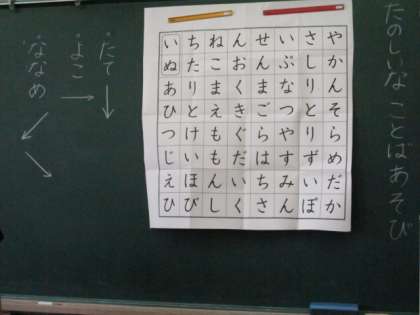 たのしいな ことばあそび
いちねんせいさや
ぬたこおんぶしか
ありまくまなりん
ひとえきごつとそ
つけもぐらやりら
じいもだはすずめ
えほんいちみいだ
ひびしくさんぼか
たて
よこ
ななめ